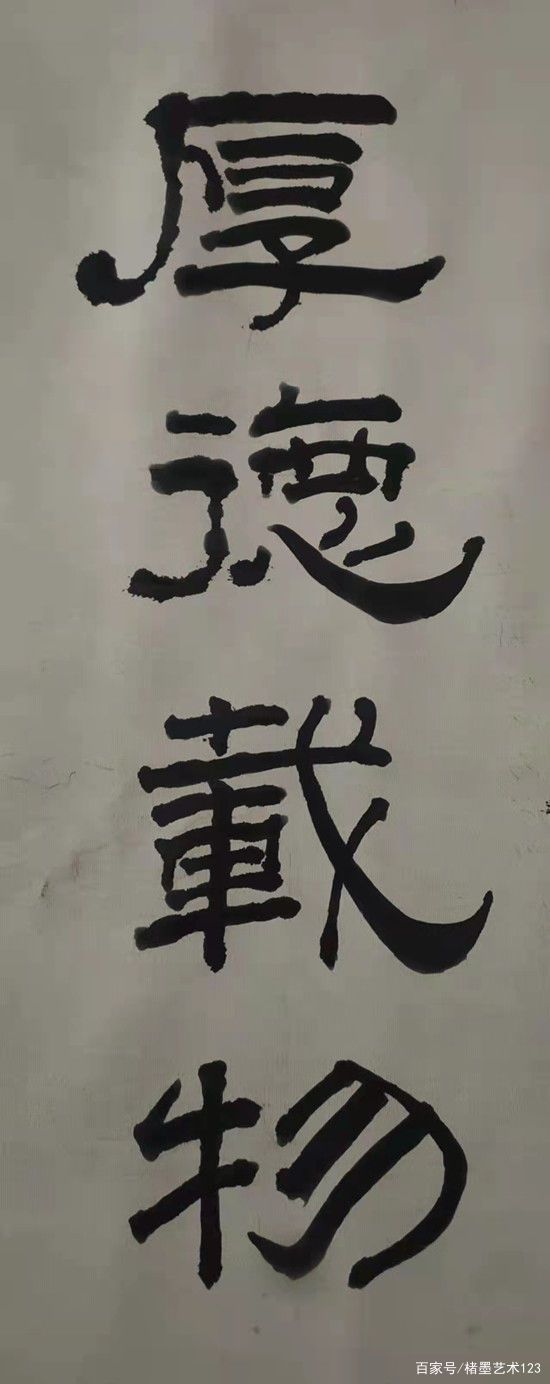 厚德載物
百家号/楮墨艺术123